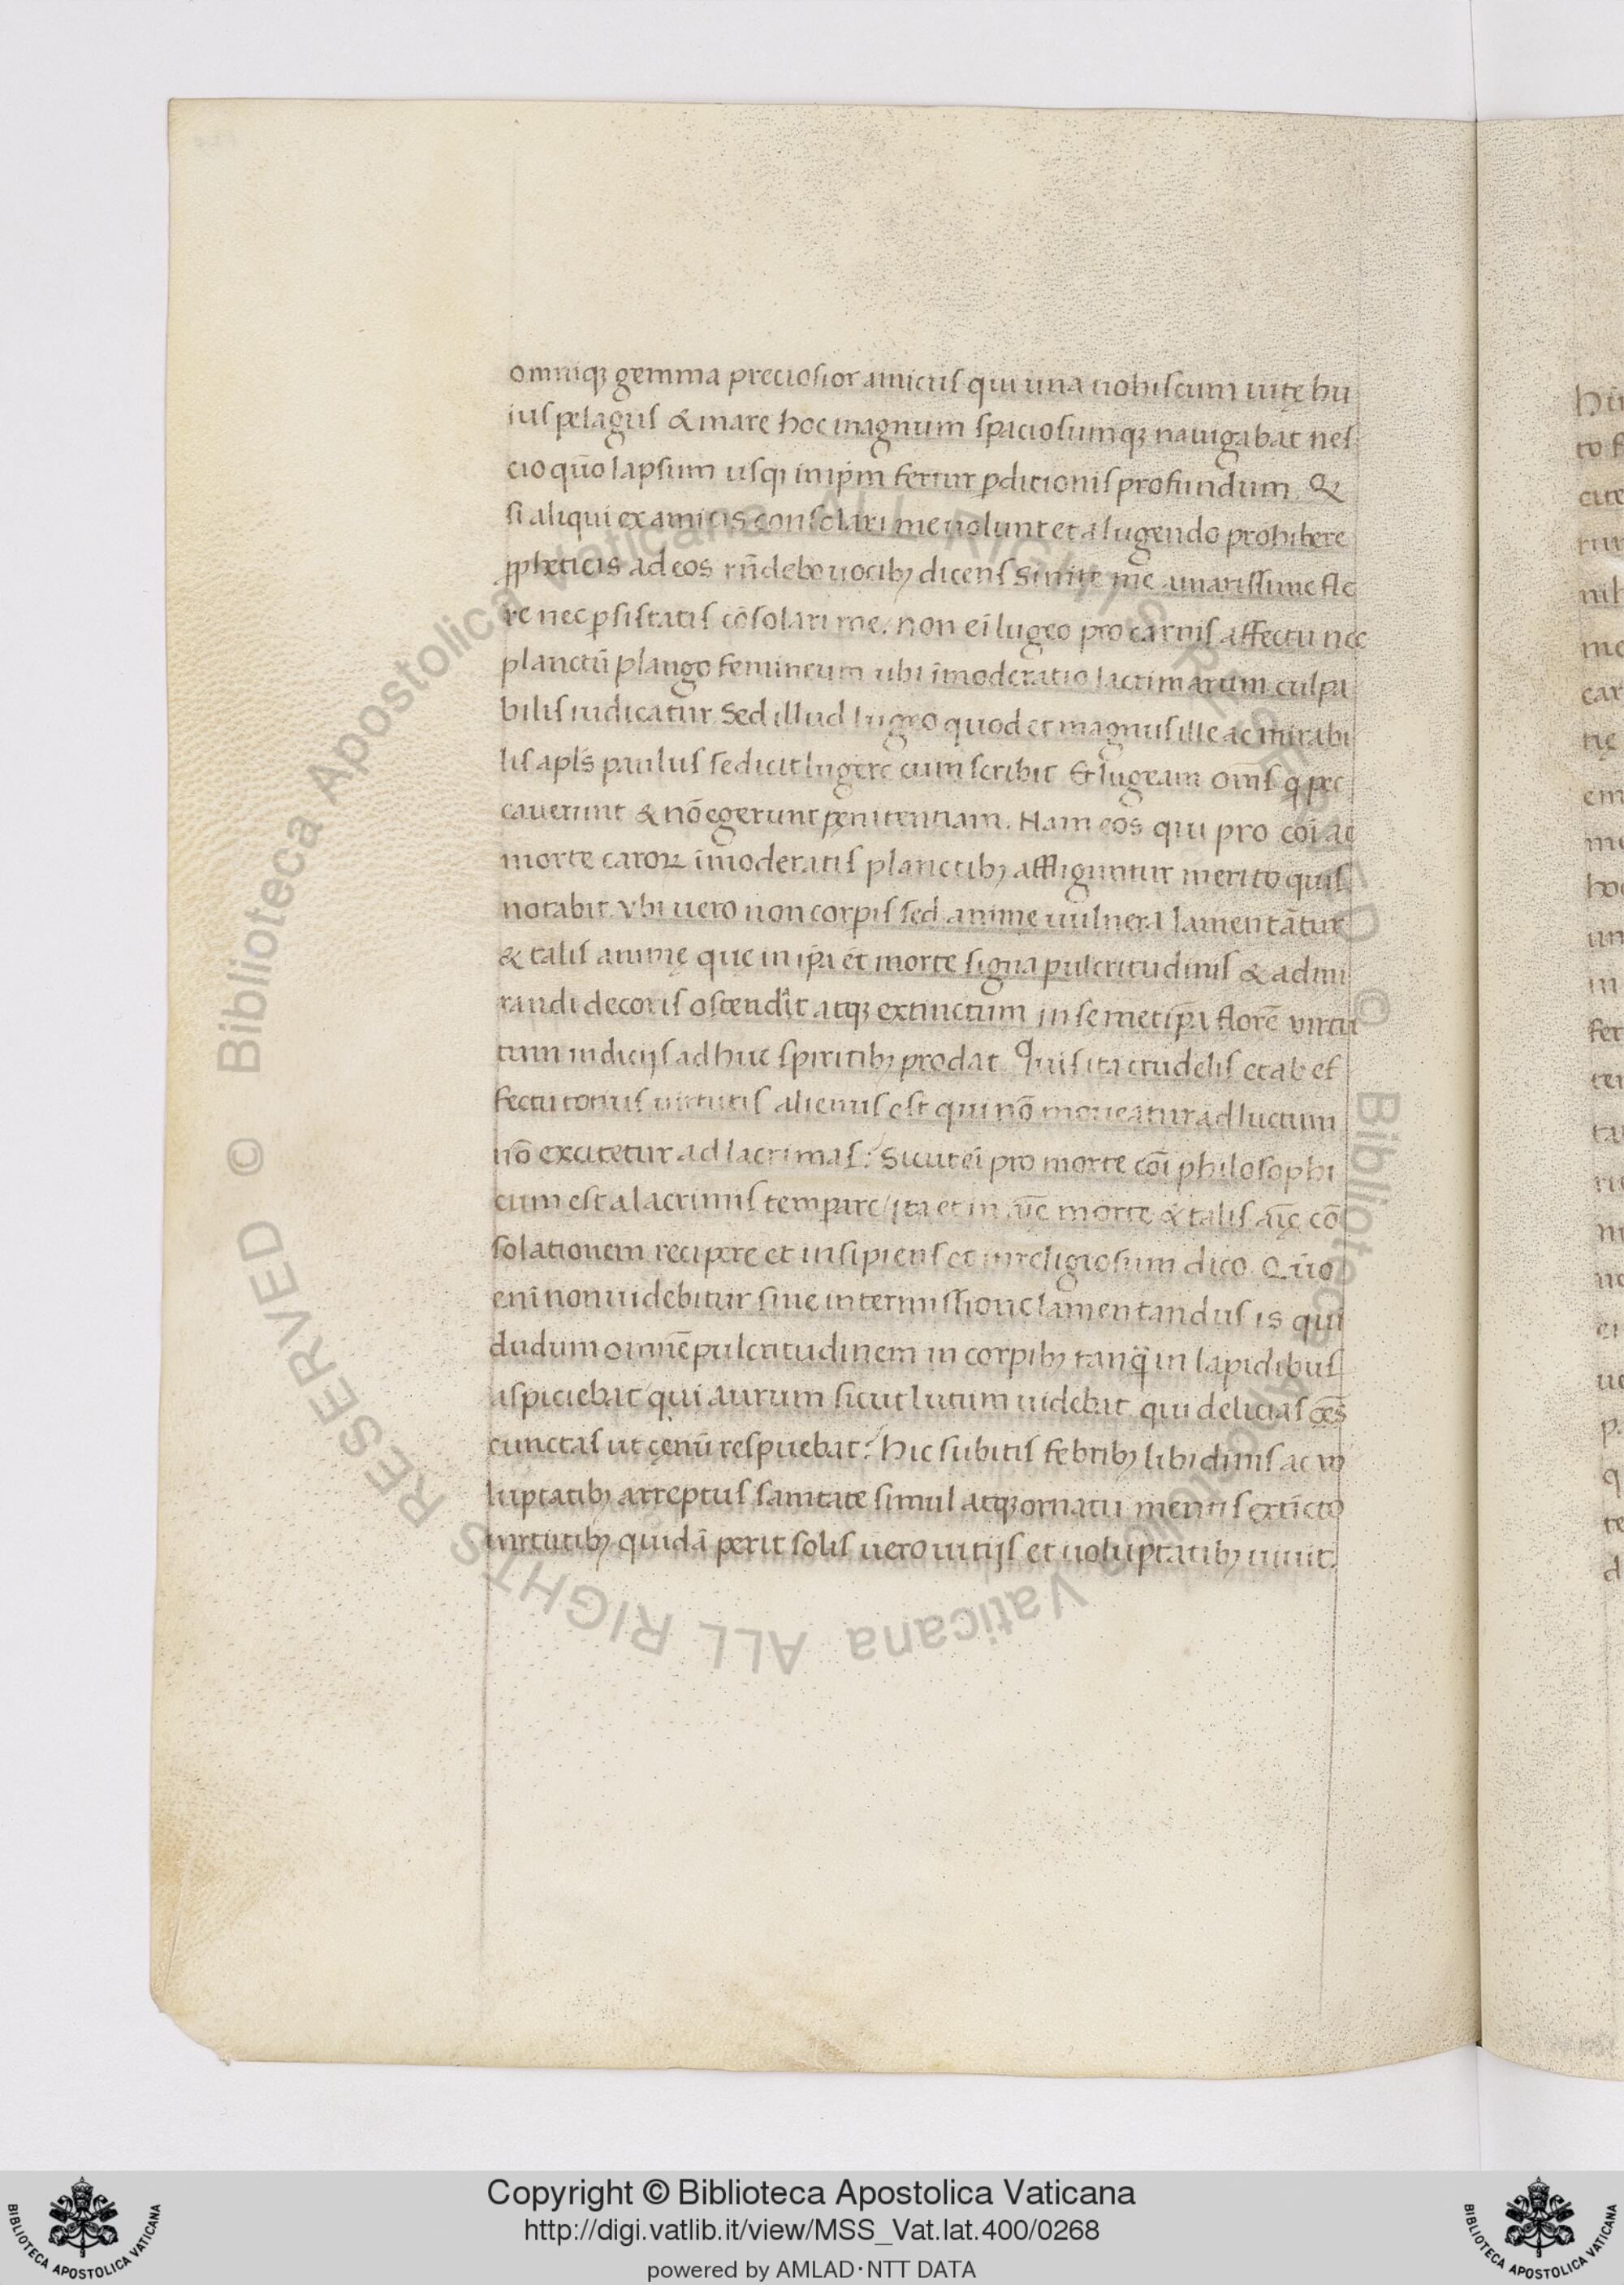 omniq; gemma preciosior amicus qui una nobiscum uitę hu
ius pelagus & mare hoc magnum spaciosumq; nauigabat nes
cio quō lapsum usq; in ip̄m fertur p̱ditionis profundum. Q
si aliqui ex amicis consolari me uolunt et a lugendo prohibere
ꝓpheticis ad eos rñdebo uocib; dicens Sinite me amarissime fle
re nec p̱sistatis cōsolari me. non eī lugeo pro carnis affectu nec
planctū plango femineum ubi īmoderatio lacrimarum culpa
bilis iudicatur. Sed illud lugeo quod et magnus ille ac mirabi
lis apl̄s paulus se dicit lugere cum scribit Et lugeam om̄s q pec
cauerunt & nō egerunt penitentiam. Nam eos qui pro coī ac
morte caroꝝ īmoderatis planctib; affliguntur merito quis
notabit. Vbi uero non corpis sed anime uulnera lamentātur
& talis animę que in ip̄a et morte signa pulcritudinis & admi
randi decoris ostendit atq; extinctum in semetip̄a florē virtu
tum indicijs adhuc spiritib; prodat. Quis ita crudelis et ab ef
fectu totius uirtutis alienus est qui nō moueatur ad luctum
nō excitetur ad lacrimas? Sicut eī pro morte coī philosophi
cum est a lacrimis temparc / ita et in aīe morte & talis aīę cō
solationem recipere et insipiens et inreligiosum dico. Quo
enī non uidebitur sine intermissione lamentandus is qui
dudum omnē pulcritudinem in corpib; tanq̄ in lapidibus
aspiciebat qui aurum sicut lutum uidebat. qui delicias oēs
cunctas ut cęnū respuebat? Hic subitis febrib; libidinis ac vo
luptatib; arreptus sanitate simul atq; ornatu mentis extīcto
uirtutib; quidā perit solis uero uitijs et uoluptatib; uiuit.
Copyright © Biblioteca Apostolica Vaticana
http://digi.vatlib.it/view/MSS_Vat.lat.400/0268
powered by AMLAD·NTT DATA